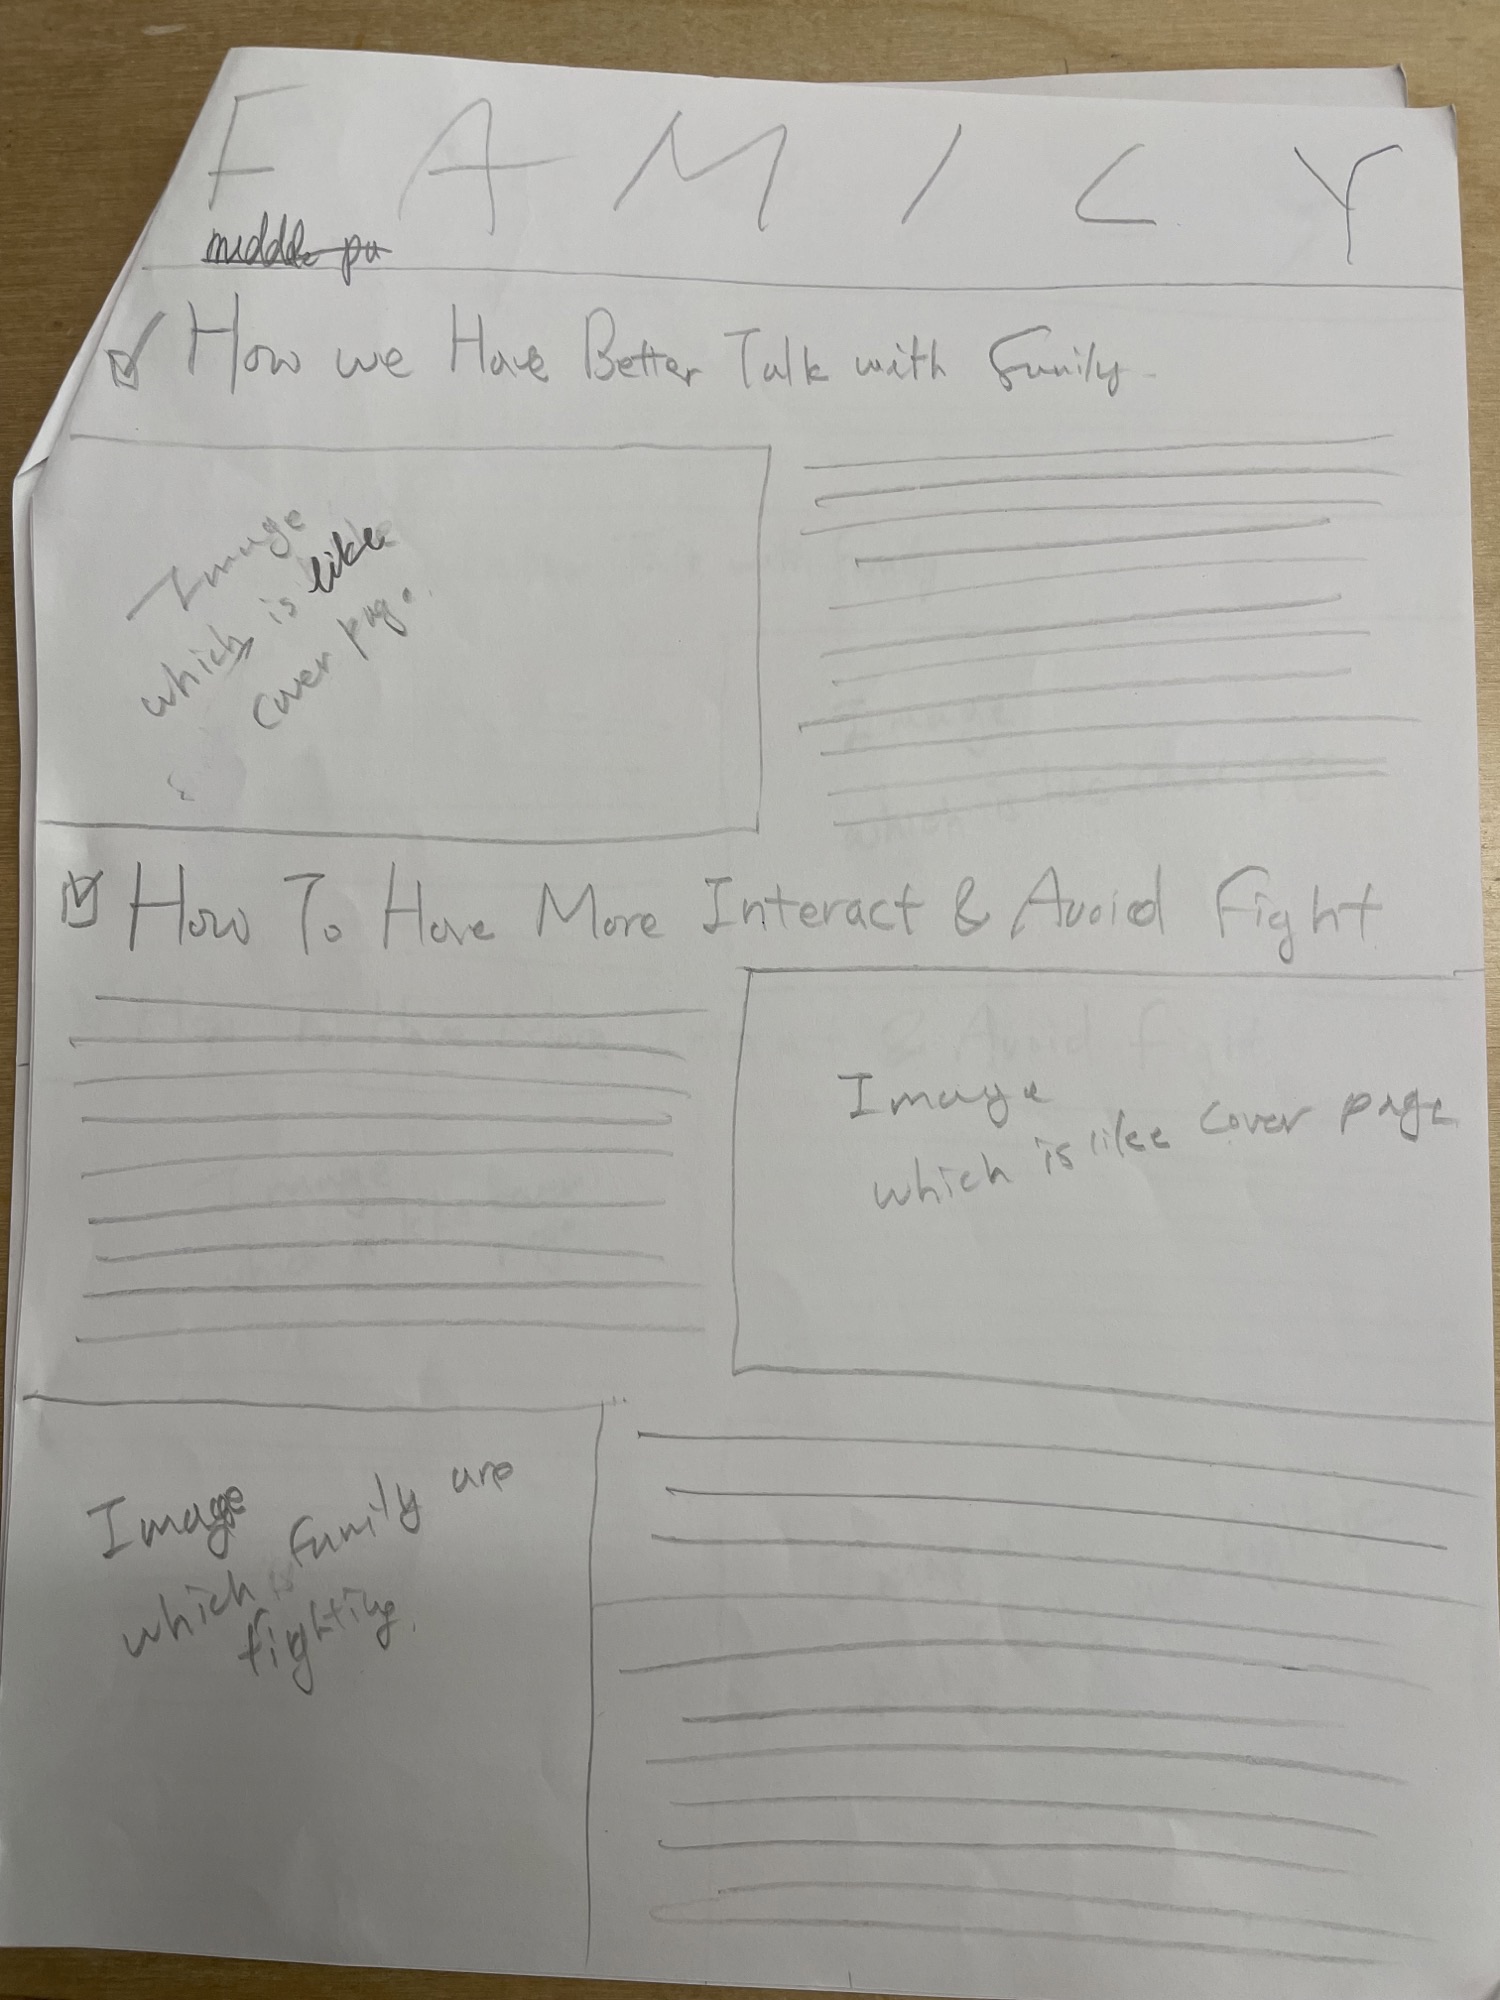 F A M I L Y
middle pa
How we Have Better Talk with Family
Image
which is like
cover page.
How To Have More Interact & Avoid Fight
Image
which is like cover page
Image
which is family are
fighting.